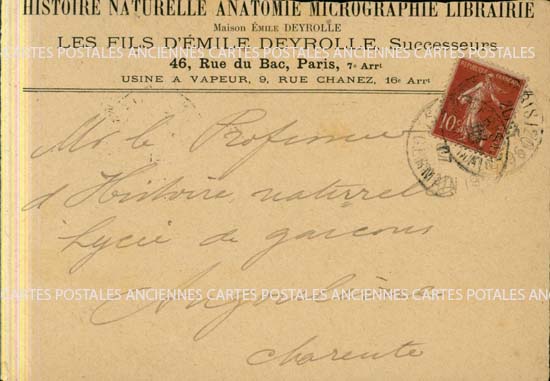 HISTOIRE NATURELLE ANATOMIE MICROGRAPHIE LIBRAIRIE
Maison ÉMILE DEYROLLE
LES FILS D'ÉMILE DEYROLLE, Successeurs
46, Rue du Bac, Paris, 7e Arrt
USINE A VAPEUR, 9, RUE CHANEZ, 16e Arrt
10c
CARTES POSTALES ANCIENNES CARTES POSTALES ANCIENNES CARTES POTALES ANCIENNES
Mr le Professeur
d'Histoire naturelle
Lycée de garçons
CARTES POSTALES ANCIENNES CARTES POSTALES ANCIENNES CARTES POTALES ANCIENNES
Angoulême
Charente